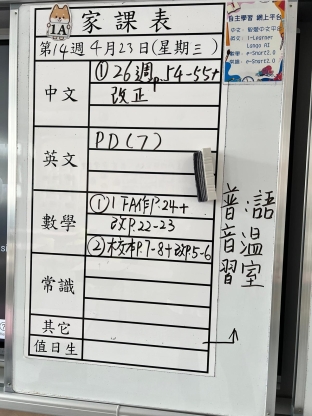 1A
家課表
第14週 4月23日(星期三)
中文
① 26週 p.54-55+
改正
英文
PD(7)
數學
① 1下A作P.24+
改P.22-23
② 校本P.7-8+改P.5-6
常識
其它
值日生
自主學習 網上平台
英文: i-Learner
Lango AI
數學: e-Smart2.0
常識: e-Smart2.0
普 語
音 溫
習 室